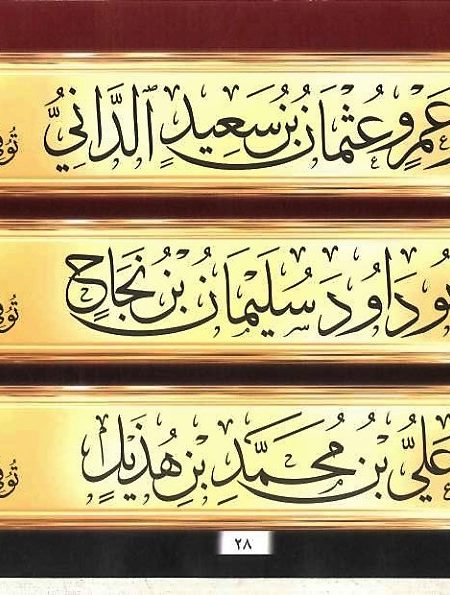 عَمْرٍو عُثْمَانُ بْنُ سَعِيدٍ ٱلدَّانِيُّ
دَاوُدَ سُلَيْمَانُ بْنُ نَجَاحٍ
عَلِيُّ بْنُ مُحَمَّدِ بْنِ هُذَيْلٍ
٢٨